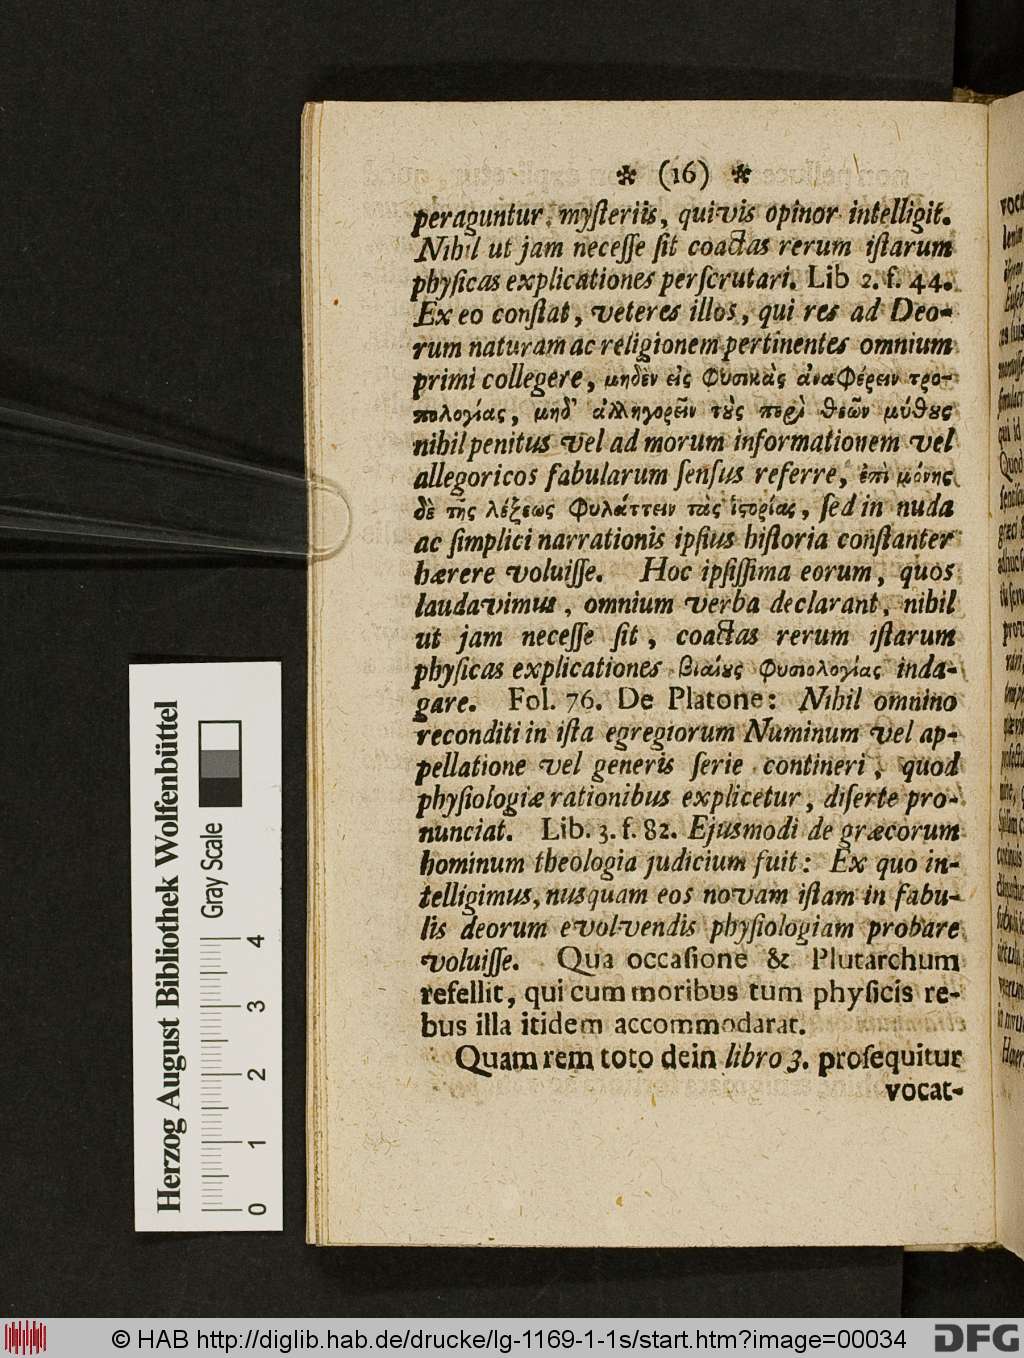 * (16) *
peraguntur, myſteriis, quivis opinor intelligit.
Nihil ut jam neceſſe ſit coactas rerum iſtarum
phyſicas explicationes perſcrutari. Lib 2. f. 44.
Ex eo conſtat, veteres illos, qui res ad Deo-
rum naturam ac religionem pertinentes omnium
primi collegere, μηδὲν εἰς Φυσικὰς ἀναΦέρειν τρο-
πολογίας, μηδ' ἀλληγορεῖν τȣ̀ς περὶ θεῶν μύθȣς
nihil penitus vel ad morum informationem vel
allegoricos fabularum ſenſus referre, ἐπὶ μόνης
δὲ τῆς λέξεως Φυλάττειν τὰς ἱϛορίας, ſed in nuda
ac ſimplici narrationis ipſius hiſtoria conſtanter
hærere voluiſſe. Hoc ipſiſſima eorum, quos
laudavimus, omnium verba declarant, nihil
ut jam neceſſe ſit, coactas rerum iſtarum
phyſicas explicationes βιαίȣς Φυσιολογίας inda-
gare. Fol. 76. De Platone: Nihil omnino
reconditi in iſta egregiorum Numinum vel ap-
pellatione vel generis ſerie contineri, quod
phyſiologiæ rationibus explicetur, diſerte pro-
nunciat. Lib. 3. f. 82. Ejusmodi de græcorum
hominum theologia judicium fuit: Ex quo in-
telligimus, nusquam eos novam iſtam in fabu-
lis deorum evolvendis phyſiologiam probare
voluiſſe. Qua occaſione & Plutarchum
refellit, qui cum moribus tum phyſicis re-
bus illa itidem accommodarat.
Quam rem toto dein libro 3. proſequitur
vocat-
Herzog August Bibliothek Wolfenbüttel
Gray Scale
0 1 2 3 4
© HAB http://diglib.hab.de/drucke/lg-1169-1-1s/start.htm?image=00034
DFG